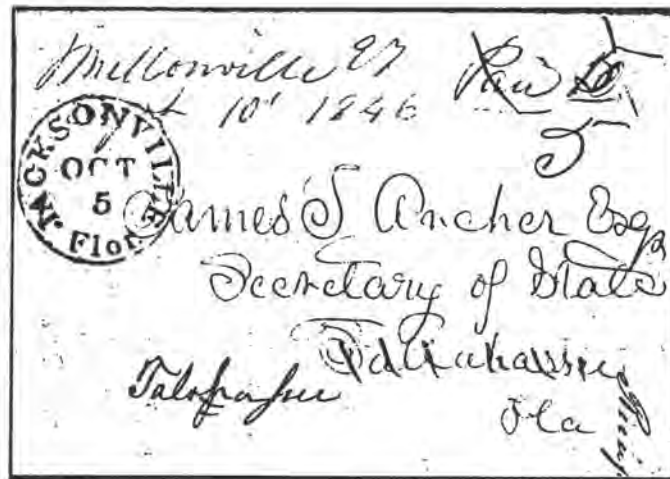 Mellonville
10' 1846
Paid
5
JACKSONVILLE
OCT
5
Flor.
James S Archer Esq
Secretary of State
Tallahassee
Fla